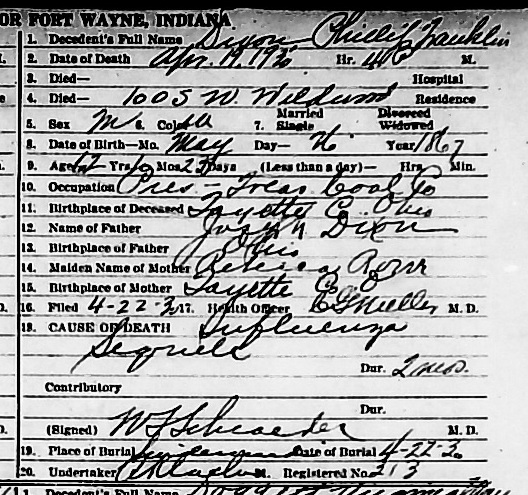 OR FORT WAYNE, INDIANA
1. Decedent's Full Name Dixon Philip Franklin
2. Date of Death Apr. 19, 1930 Hr. 4 P M.
3. Died— Hospital
4. Died— 1005 W. Wildwood Residence
5. Sex M. Color W 7. Married Single Divorced Widowed
8. Date of Birth—Mo. May Day— 26 Year 1867
9. Age 62 Yrs. Mos. 23 Days (Less than a day)— Hrs. Min.
10. Occupation Pres - Treas Coal Co
11. Birthplace of Deceased Fayette Co. Ohio
12. Name of Father Joseph Dixon
13. Birthplace of Father Ohio
14. Maiden Name of Mother Rebecca
15. Birthplace of Mother Fayette Co O
16. Filed 4-22-30 17. Health Officer M. D.
18. CAUSE OF DEATH Influenza
Sequela
Dur. 2 mos.
Contributory
Dur.
(Signed) W F Schroeder M. D.
19. Place of Burial Lindenwood Date of Burial 4-22-30
20. Undertaker Registered No. 213
1. Decedent's Full Name